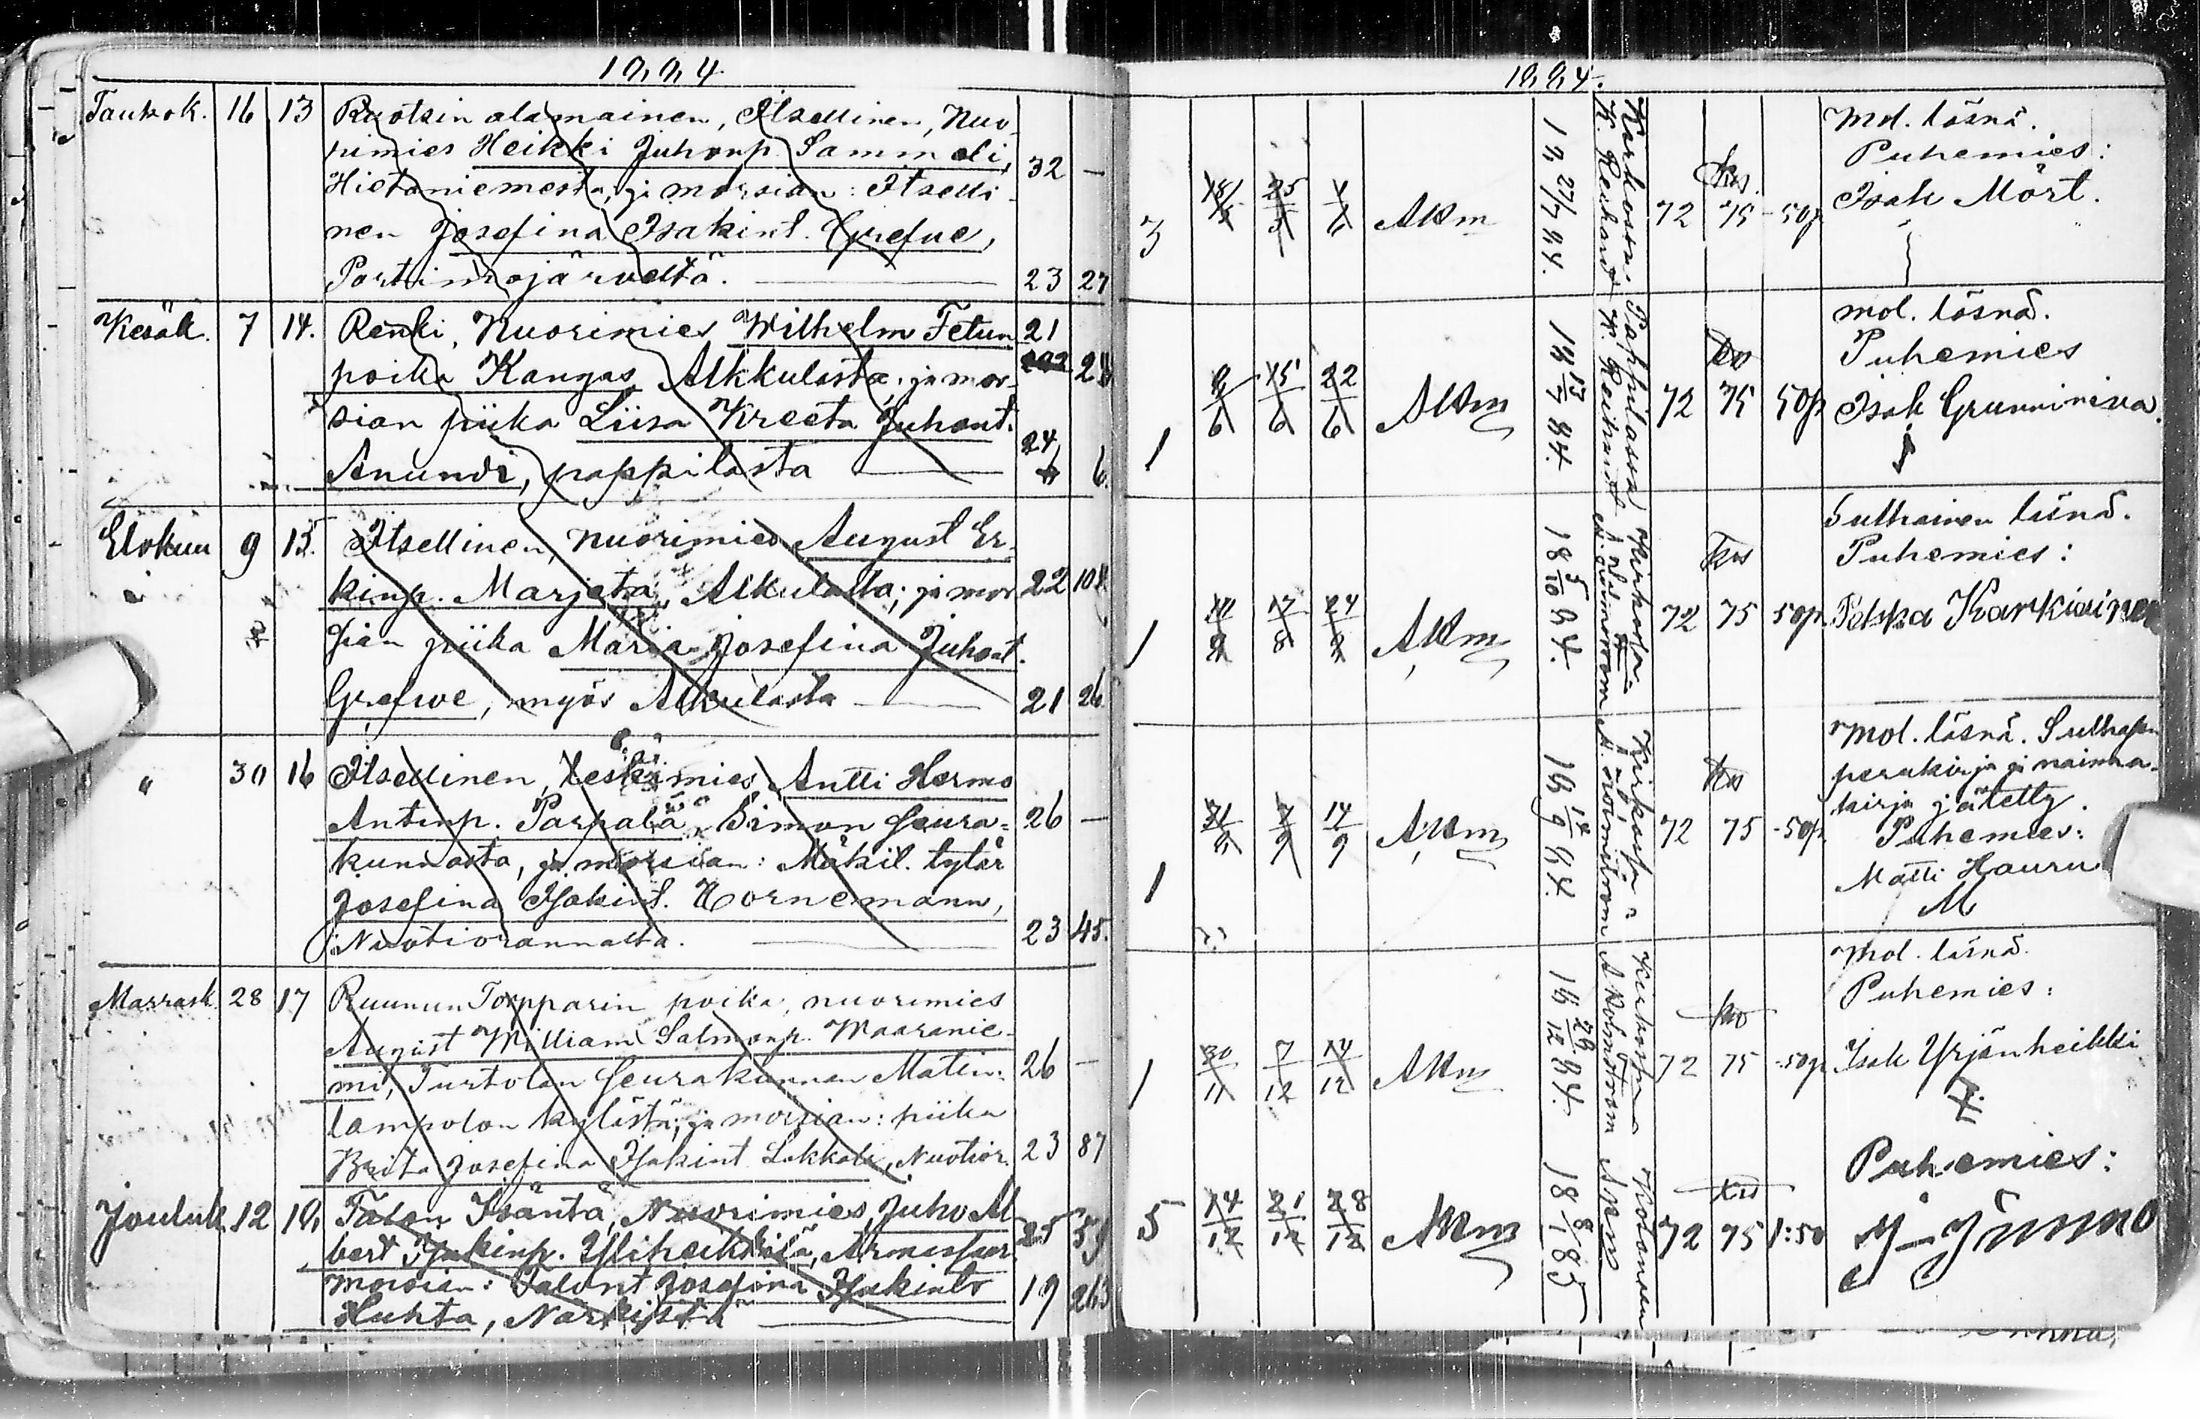 1884
Toukok. 16 13 Ruotsin alamainen, Itsellinen, Nuo-
rimies Heikki Juhonp. Sammeli, 32 —
Hietaniemestä, ja morsian: Itselli-
nen Josefina Isakint. Grefve,
Portimojärveltä. 23 27
Kesäk. 7 14. Renki, Nuorimies Wilhelm Fetun 21
poika Kangas, Alkkulasta, ja mor-
sian piika Liisa Kreeta Juhont. 24
Anundi, pappilasta 6.
Elokuu 9 15. Itsellinen, nuorimies August Er-
kinp. Marjeta, Alkulasta; ja mor 22 108
sian piika Maria Josefina Juhont.
Grefwe, myös Alkulasta 21 26
" 30 16 Itsellinen, leskimies Antti Hermo
Antinp. Parpala Simon seura= 26 —
kunnasta, ja morsian: Mäkit. tytär
Josefina Isakint. Hornemann,
Nuotiorannalta. 23 45.
Marrask. 28 17 Ruunun Torpparin poika, nuorimies
August William Salmonp. Waaranie-
mi, Turtolan Seurakunnan Matin- 26 —
lampolon kylästä; ja morsian: piika
Brita Josefina Isakint. Lakkala, Nuotior. 23 87
Jouluk. 12 18, Talon Isäntä, Nuorimies, Juho Al
bert Isakinp. Yliheikkilä, Armassaar. 25 59
morsian: Talont. Josefina Isakint. 19 263
Huhta, Närkistä
1884.
3 18/5 25/5 1/6 AKm 18 27/7 84. 72 75 -50p Mol. läsnä.
Puhemies:
Isak Mört.
1 8/6 15/6 22/6 AKm 18 13/7 84. 72 75 50p mol. läsnä.
Puhemies
Isak Grunniniva
1 10/8 17/8 24/8 AKm 18 5/10 84. 72 75 50p. Sulhainen läsnä.
Puhemies:
Pekka Karkiainen
1 31/8 7/9 14/9 AKm 18 14/9 84. 72 75 -50p. Mol. läsnä. Sulhasen
perukirja ja nainna-
kirja jätetty.
Puhemies:
Matti Hauru
M
1 30/11 7/12 14/12 AKm 18 28/12 84. 72 75 -50p Mol. läsnä.
Puhemies:
Isak Yrjänheikki
5 14/12 21/12 28/12 AKm 18 8/1 85 72 75 1:50 Puhemies:
Kirkossa Pappilassa Kirkossa Kirkossa Kirkossa Kotonen